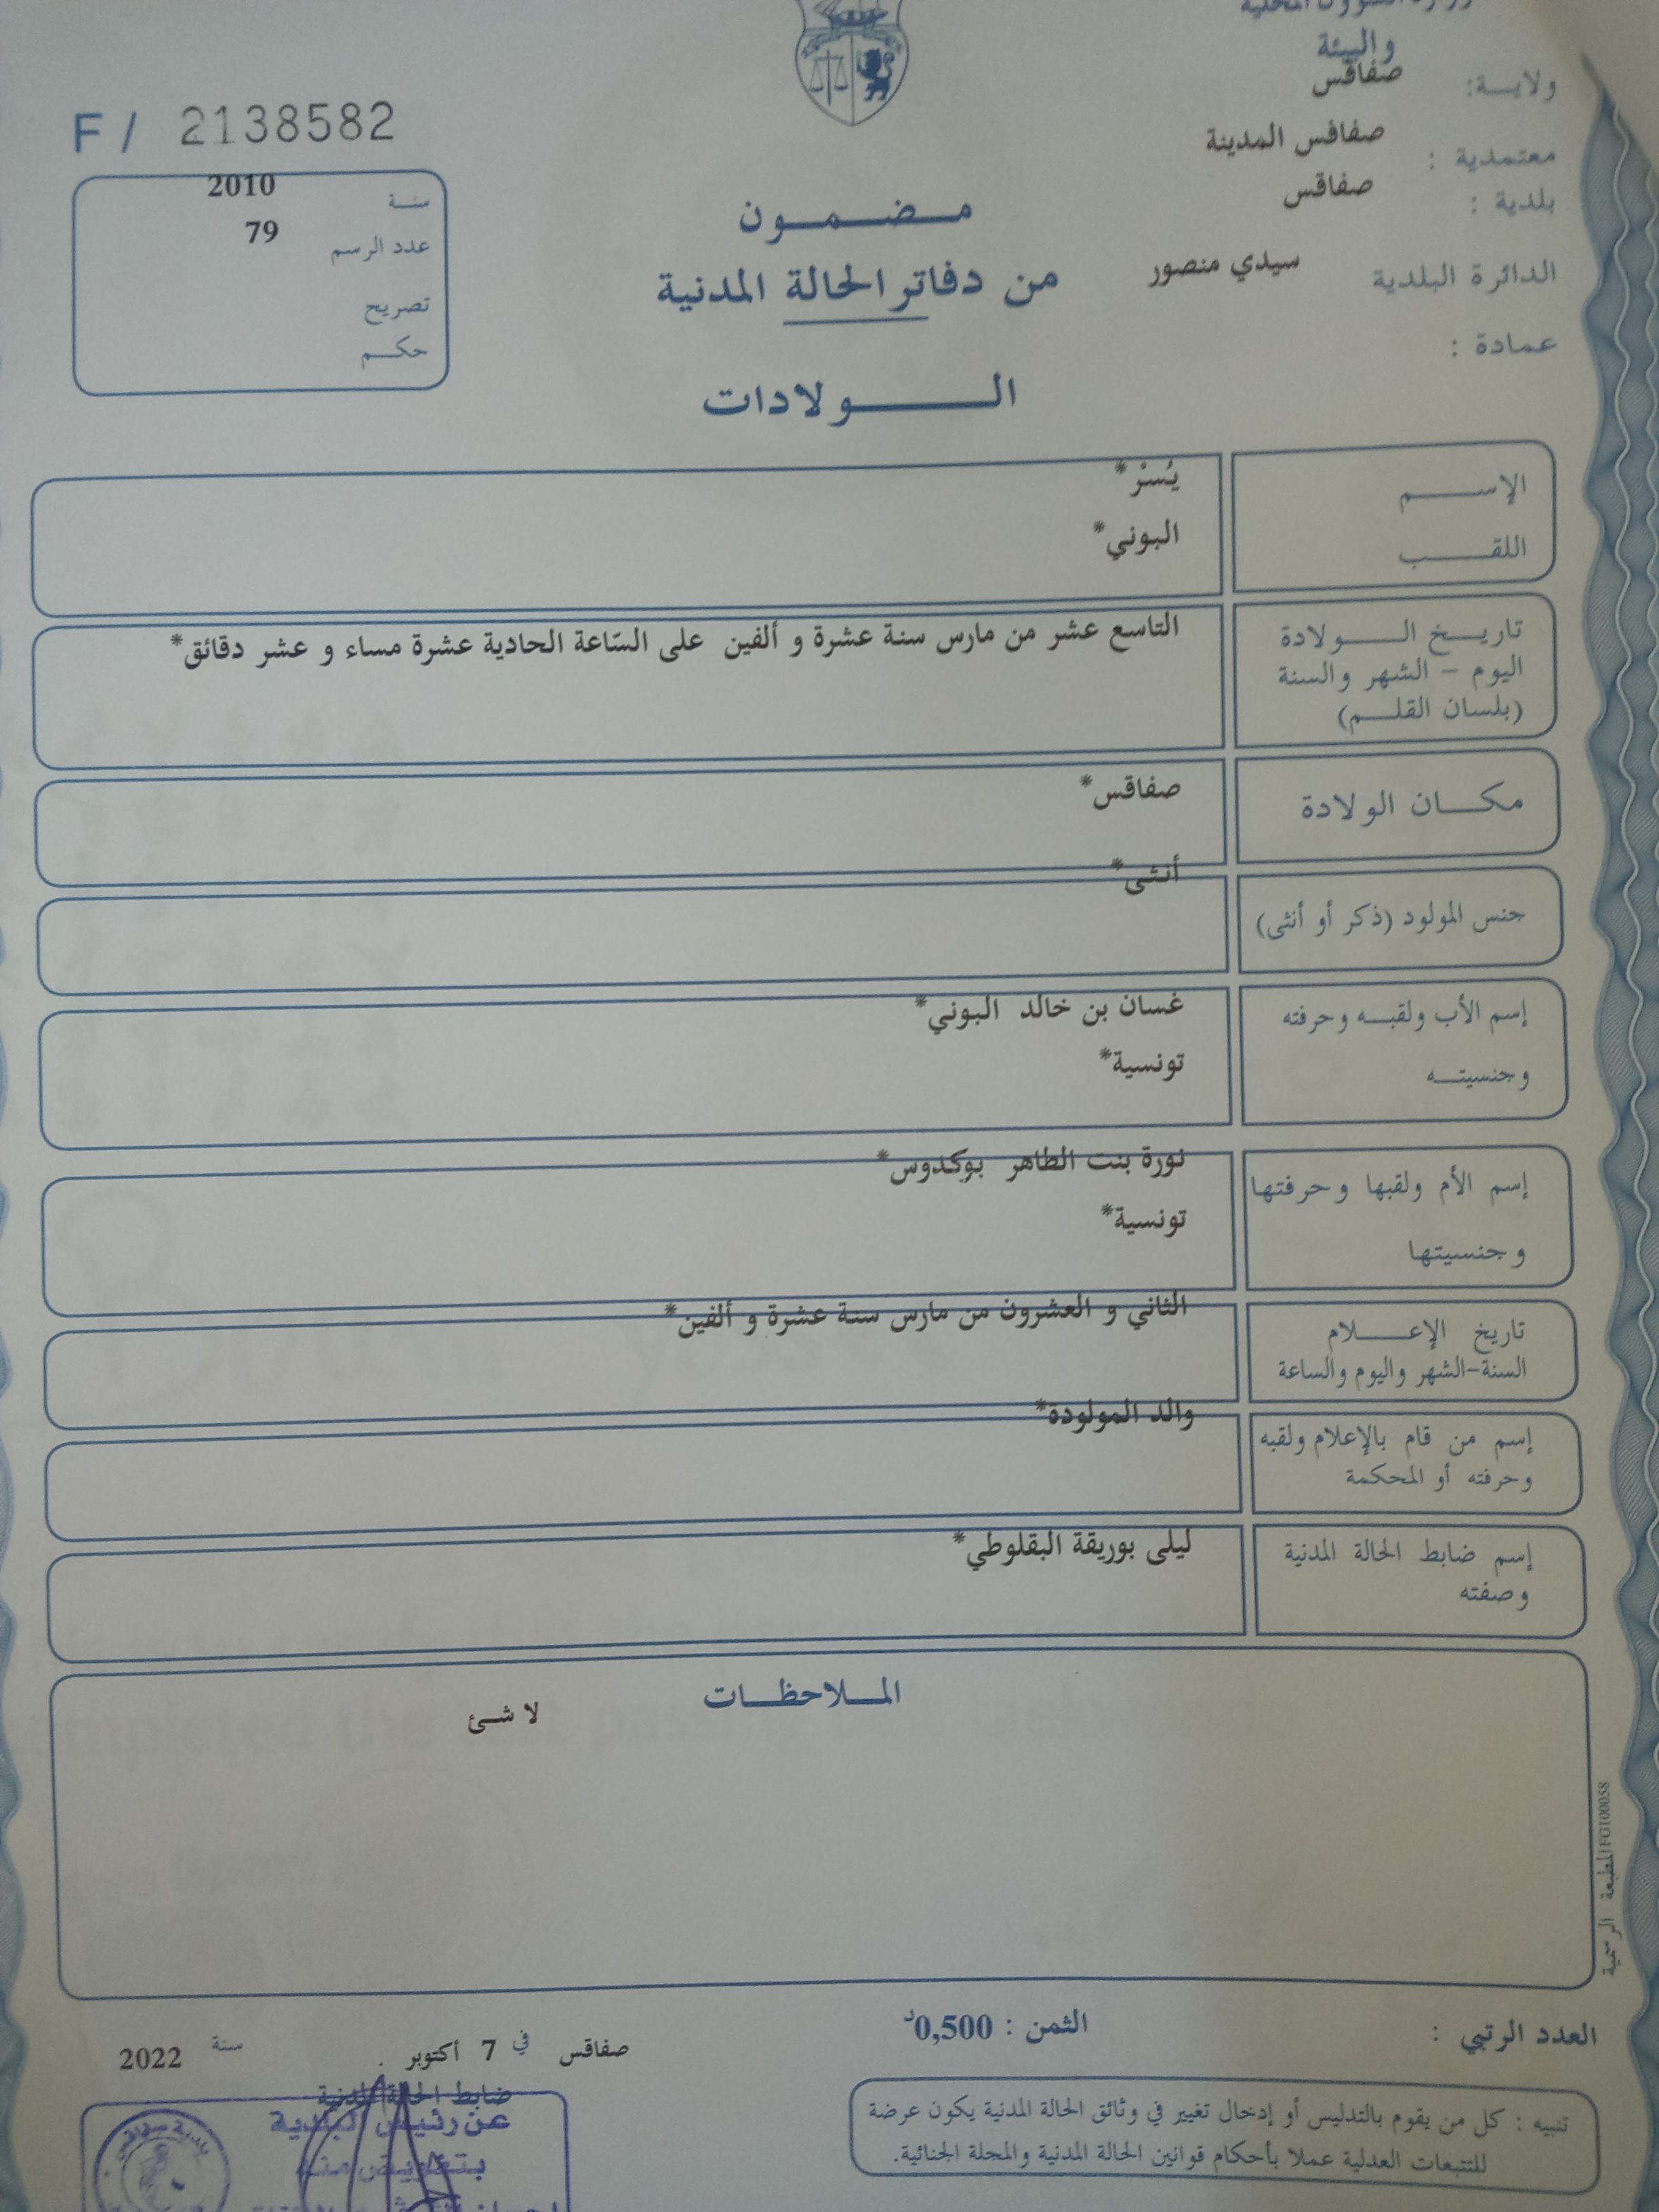 والبيئة
ولاية: صفاقس
معتمدية : صفاقس المدينة
بلدية : صفاقس
الدائرة البلدية سيدي منصور
عمادة :
F / 2138582
سنة 2010
عدد الرسم 79
تصريح
حكم
مضمون
من دفاتر الحالة المدنية
الولادات
الإسم يُسْر*
اللقب البوني*
تاريخ الولادة
اليوم - الشهر والسنة
(بلسان القلم)
التاسع عشر من مارس سنة عشرة و ألفين على السّاعة الحادية عشرة مساء و عشر دقائق*
مكان الولادة صفاقس*
جنس المولود (ذكر أو أنثى) أنثى*
إسم الأب ولقبه وحرفته غسان بن خالد البوني*
وجنسيته تونسية*
إسم الأم ولقبها وحرفتها نورة بنت الطاهر بوكدوس*
وجنسيتها تونسية*
تاريخ الإعلام
السنة-الشهر واليوم والساعة
الثاني و العشرون من مارس سنة عشرة و ألفين*
إسم من قام بالإعلام ولقبه
وحرفته أو المحكمة
والد المولودة*
إسم ضابط الحالة المدنية
وصفته
ليلى بوريقة البقلوطي*
الملاحظات
لا شئ
المطبعة الرسمية FG100058
العدد الرتبي :
الثمن : 0,500د
صفاقس في 7 أكتوبر سنة 2022
ضابط الحالة المدنية
عن رئيس البلدية
بتفويض منه
بلدية صفاقس
تنبيه : كل من يقوم بالتدليس أو إدخال تغيير في وثائق الحالة المدنية يكون عرضة
للتتبعات العدلية عملا بأحكام قوانين الحالة المدنية والمجلة الجنائية.